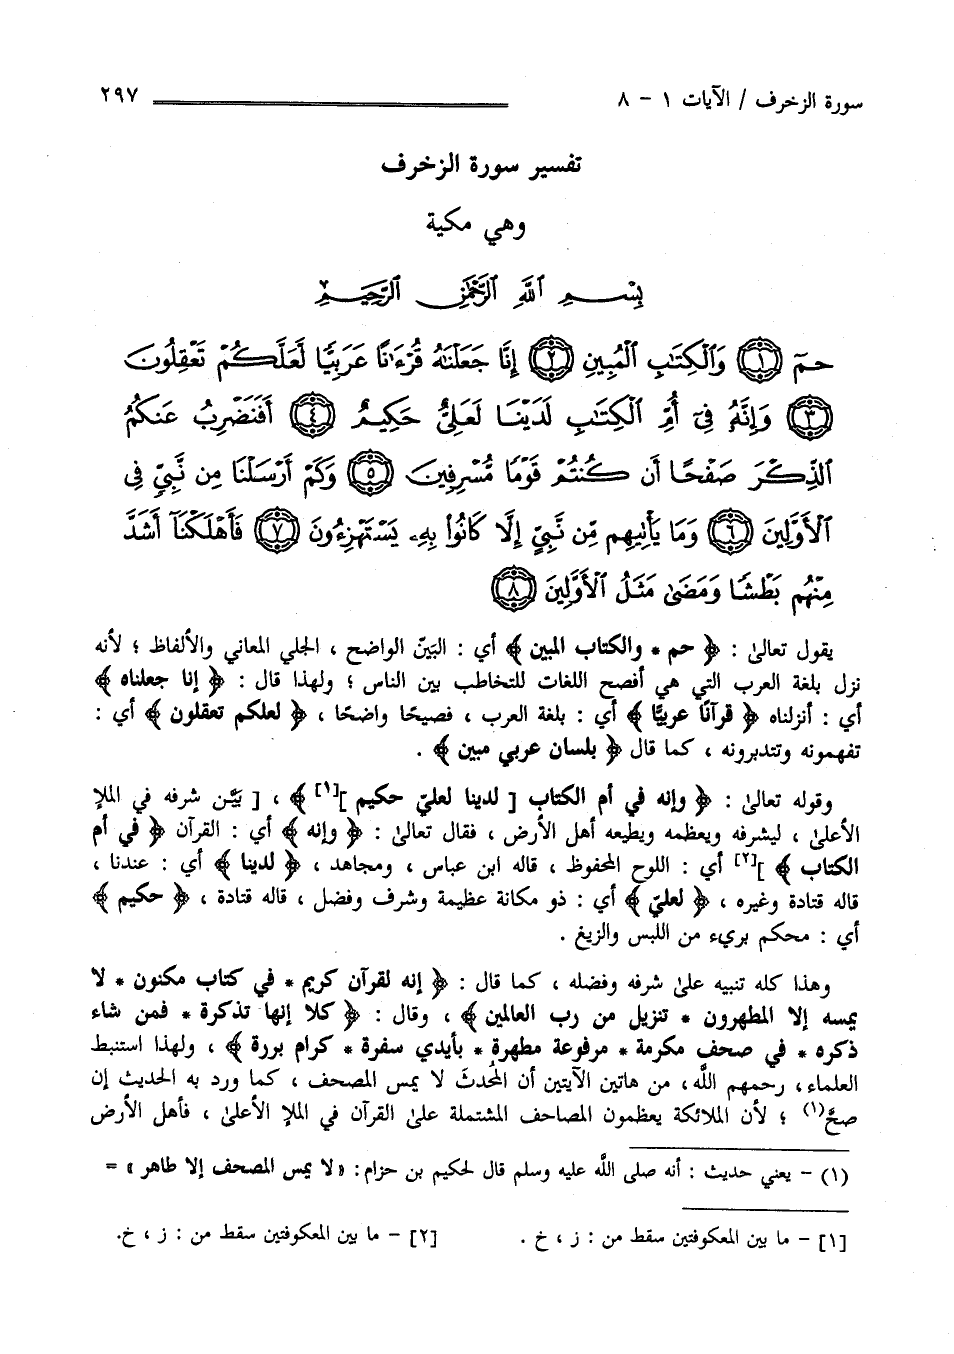 سورة الزخرف / الآيات ١ - ٨ ٢٩٧
تفسير سورة الزخرف
وهي مكية
بِسْمِ اللَّهِ الرَّحْمَٰنِ الرَّحِيمِ
حمٓ ﴿١﴾ وَٱلْكِتَٰبِ ٱلْمُبِينِ ﴿٢﴾ إِنَّا جَعَلْنَٰهُ قُرْءَٰنًا عَرَبِيًّا لَّعَلَّكُمْ تَعْقِلُونَ
﴿٣﴾ وَإِنَّهُۥ فِىٓ أُمِّ ٱلْكِتَٰبِ لَدَيْنَا لَعَلِىٌّ حَكِيمٌ ﴿٤﴾ أَفَنَضْرِبُ عَنكُمُ
ٱلذِّكْرَ صَفْحًا أَن كُنتُمْ قَوْمًا مُّسْرِفِينَ ﴿٥﴾ وَكَمْ أَرْسَلْنَا مِن نَّبِىٍّ فِى
ٱلْأَوَّلِينَ ﴿٦﴾ وَمَا يَأْتِيهِم مِّن نَّبِىٍّ إِلَّا كَانُوا۟ بِهِۦ يَسْتَهْزِءُونَ ﴿٧﴾ فَأَهْلَكْنَآ أَشَدَّ
مِنْهُم بَطْشًا وَمَضَىٰ مَثَلُ ٱلْأَوَّلِينَ ﴿٨﴾
يقول تعالىٰ : ﴿ حم * والكتاب المبين ﴾ أي : البَيّن الواضح ، الجلي المعاني والألفاظ ؛ لأنه
نزل بلغة العرب التي هي أفصح اللغات للتخاطب بين الناس ؛ ولهذا قال : ﴿ إنا جعلناه ﴾
أي : أنزلناه ﴿ قرآنًا عربيًّا ﴾ أي : بلغة العرب ، فصيحًا واضحًا ، ﴿ لعلكم تعقلون ﴾ أي :
تفهمونه وتتدبرونه ، كما قال ﴿ بلسان عربي مبين ﴾ .
وقوله تعالىٰ : ﴿ وإنه في أم الكتاب [ لدينا لعليّ حكيم ][١] ﴾ ، [ بَيَّن شرفه في الملإ
الأعلىٰ ، ليشرفه ويعظمه ويطيعه أهل الأرض ، فقال تعالىٰ : ﴿ وإنه ﴾ أي : القرآن ﴿ في أم
الكتاب ﴾ ][٢] أي : اللوح المحفوظ ، قاله ابن عباس ، ومجاهد ، ﴿ لدينا ﴾ أي : عندنا ،
قاله قتادة وغيره ، ﴿ لعليّ ﴾ أي : ذو مكانة عظيمة وشرف وفضل ، قاله قتادة ، ﴿ حكيم ﴾
أي : محكم بريء من اللبس والزيغ .
وهذا كله تنبيه علىٰ شرفه وفضله ، كما قال : ﴿ إنه لقرآن كريم * في كتاب مكنون * لا
يمسه إلا المطهرون * تنزيل من رب العالمين ﴾ ، وقال : ﴿ كلا إنها تذكرة * فمن شاء
ذكره * في صحف مكرمة * مرفوعة مطهرة * بأيدي سفرة * كرام بررة ﴾ ، ولهذا استنبط
العلماء ، رحمهم اللَّه ، من هاتين الآيتين أن المُحدِثَ لا يمس المصحف ، كما ورد به الحديث إن
صحَّ(١) ؛ لأن الملائكة يعظمون المصاحف المشتملة علىٰ القرآن في الملإ الأعلىٰ ، فأهل الأرض
(١) - يعني حديث : أنه صلى اللَّه عليه وسلم قال لحكيم بن حزام : «لا يمس المصحف إلا طاهر» =
[١] - ما بين المعكوفتين سقط من : ز ، خ . [٢] - ما بين المعكوفتين سقط من : ز ، خ.